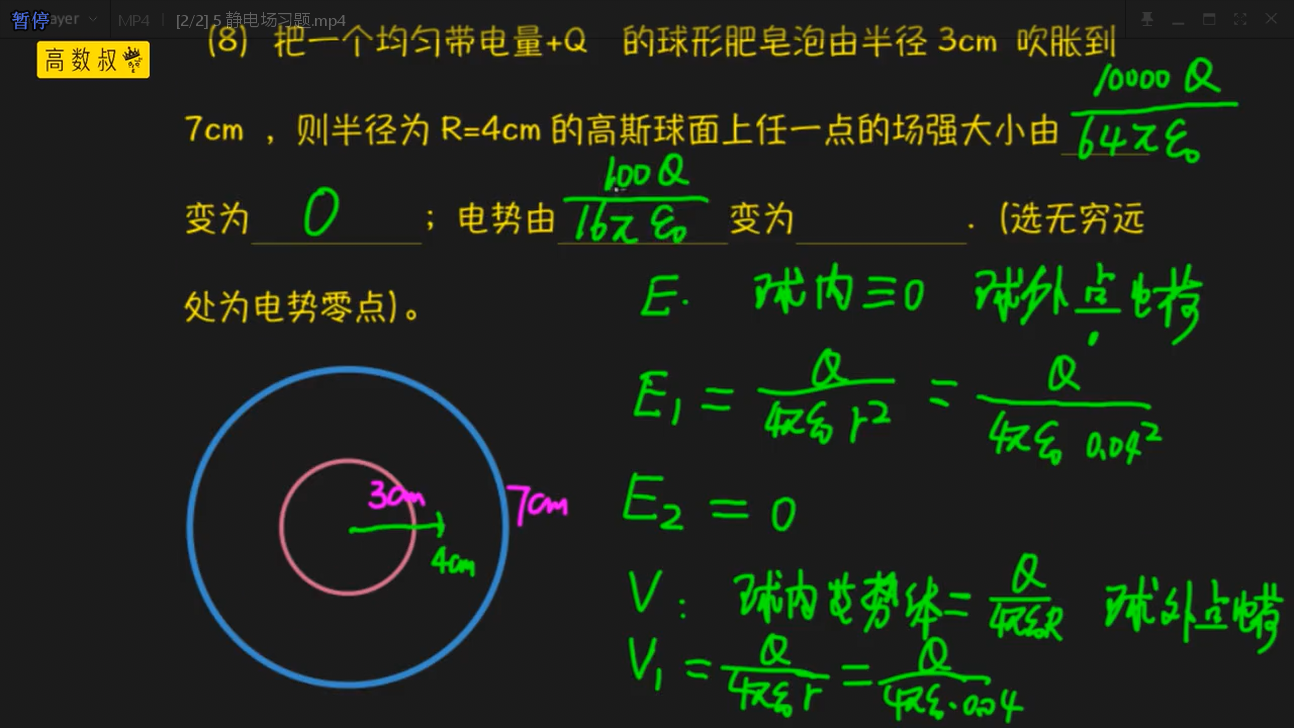 暂停
ayer MP4 [2/2] 5 静电场习题.mp4
高数叔
(8) 把一个均匀带电量+Q 的球形肥皂泡由半径 3cm 吹胀到
7cm ，则半径为 R=4cm 的高斯球面上任一点的场强大小由 10000 Q / 64π ε₀
变为 0 ；电势由 100 Q / 16π ε₀ 变为 . (选无穷远
处为电势零点)。
E. 球内≡0 球外点电荷
E₁ = Q / 4πε₀ r² = Q / 4πε₀ 0.04²
E₂ = 0
3cm
7cm
4cm
V : 球内等势体 = Q / 4πε₀R 球外点电荷
V₁ = Q / 4πε₀ r = Q / 4πε₀·0.04